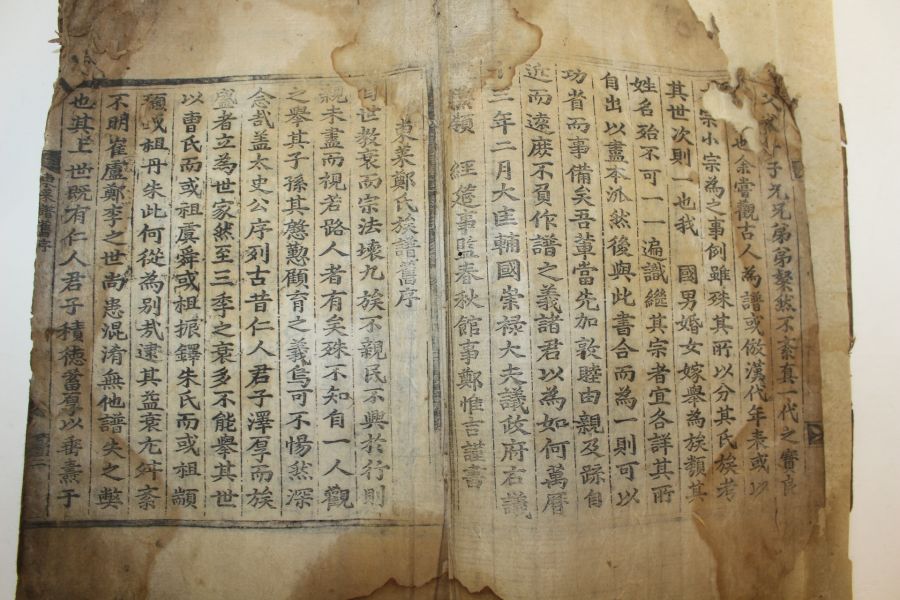 父子兄兄弟弟粲然不紊真一代之寶
也余嘗觀古人為譜或倣漢代年表或以
宗小宗為之事例雖殊其所以分其氏族考
其世次則一也我 國男婚女嫁舉為族類其
姓名殆不可一一遍識繼其宗者宜各詳其所
自出以盡本派然後與此書合而為一則可以
功省而事備矣吾輩當先加敦睦由親及踈自
近而遠庶不負作譜之義諸君以為如何萬曆
二年二月大匡輔國崇祿大夫議政府右議
經筵事監春秋館事鄭惟吉謹書
東萊鄭氏族譜舊序
世教衰而宗法壞九族不親民不興於行則
親未盡而視若路人者有矣殊不知自一人觀
之舉其子孫其慇懃顧育之義烏可不惕然深
念哉盖太史公序列古昔仁人君子澤厚而族
盛者立為世家然至三季之衰多不能舉其世
以曹氏而或祖虞舜或祖振鐸朱氏而或祖顓
頊或祖丹朱此何從為別哉逮其益衰尤舛紊
不明崔盧鄭李之世尚患混淆無他譜失之弊
也其上世既有仁人君子積德蓄厚以垂燾子